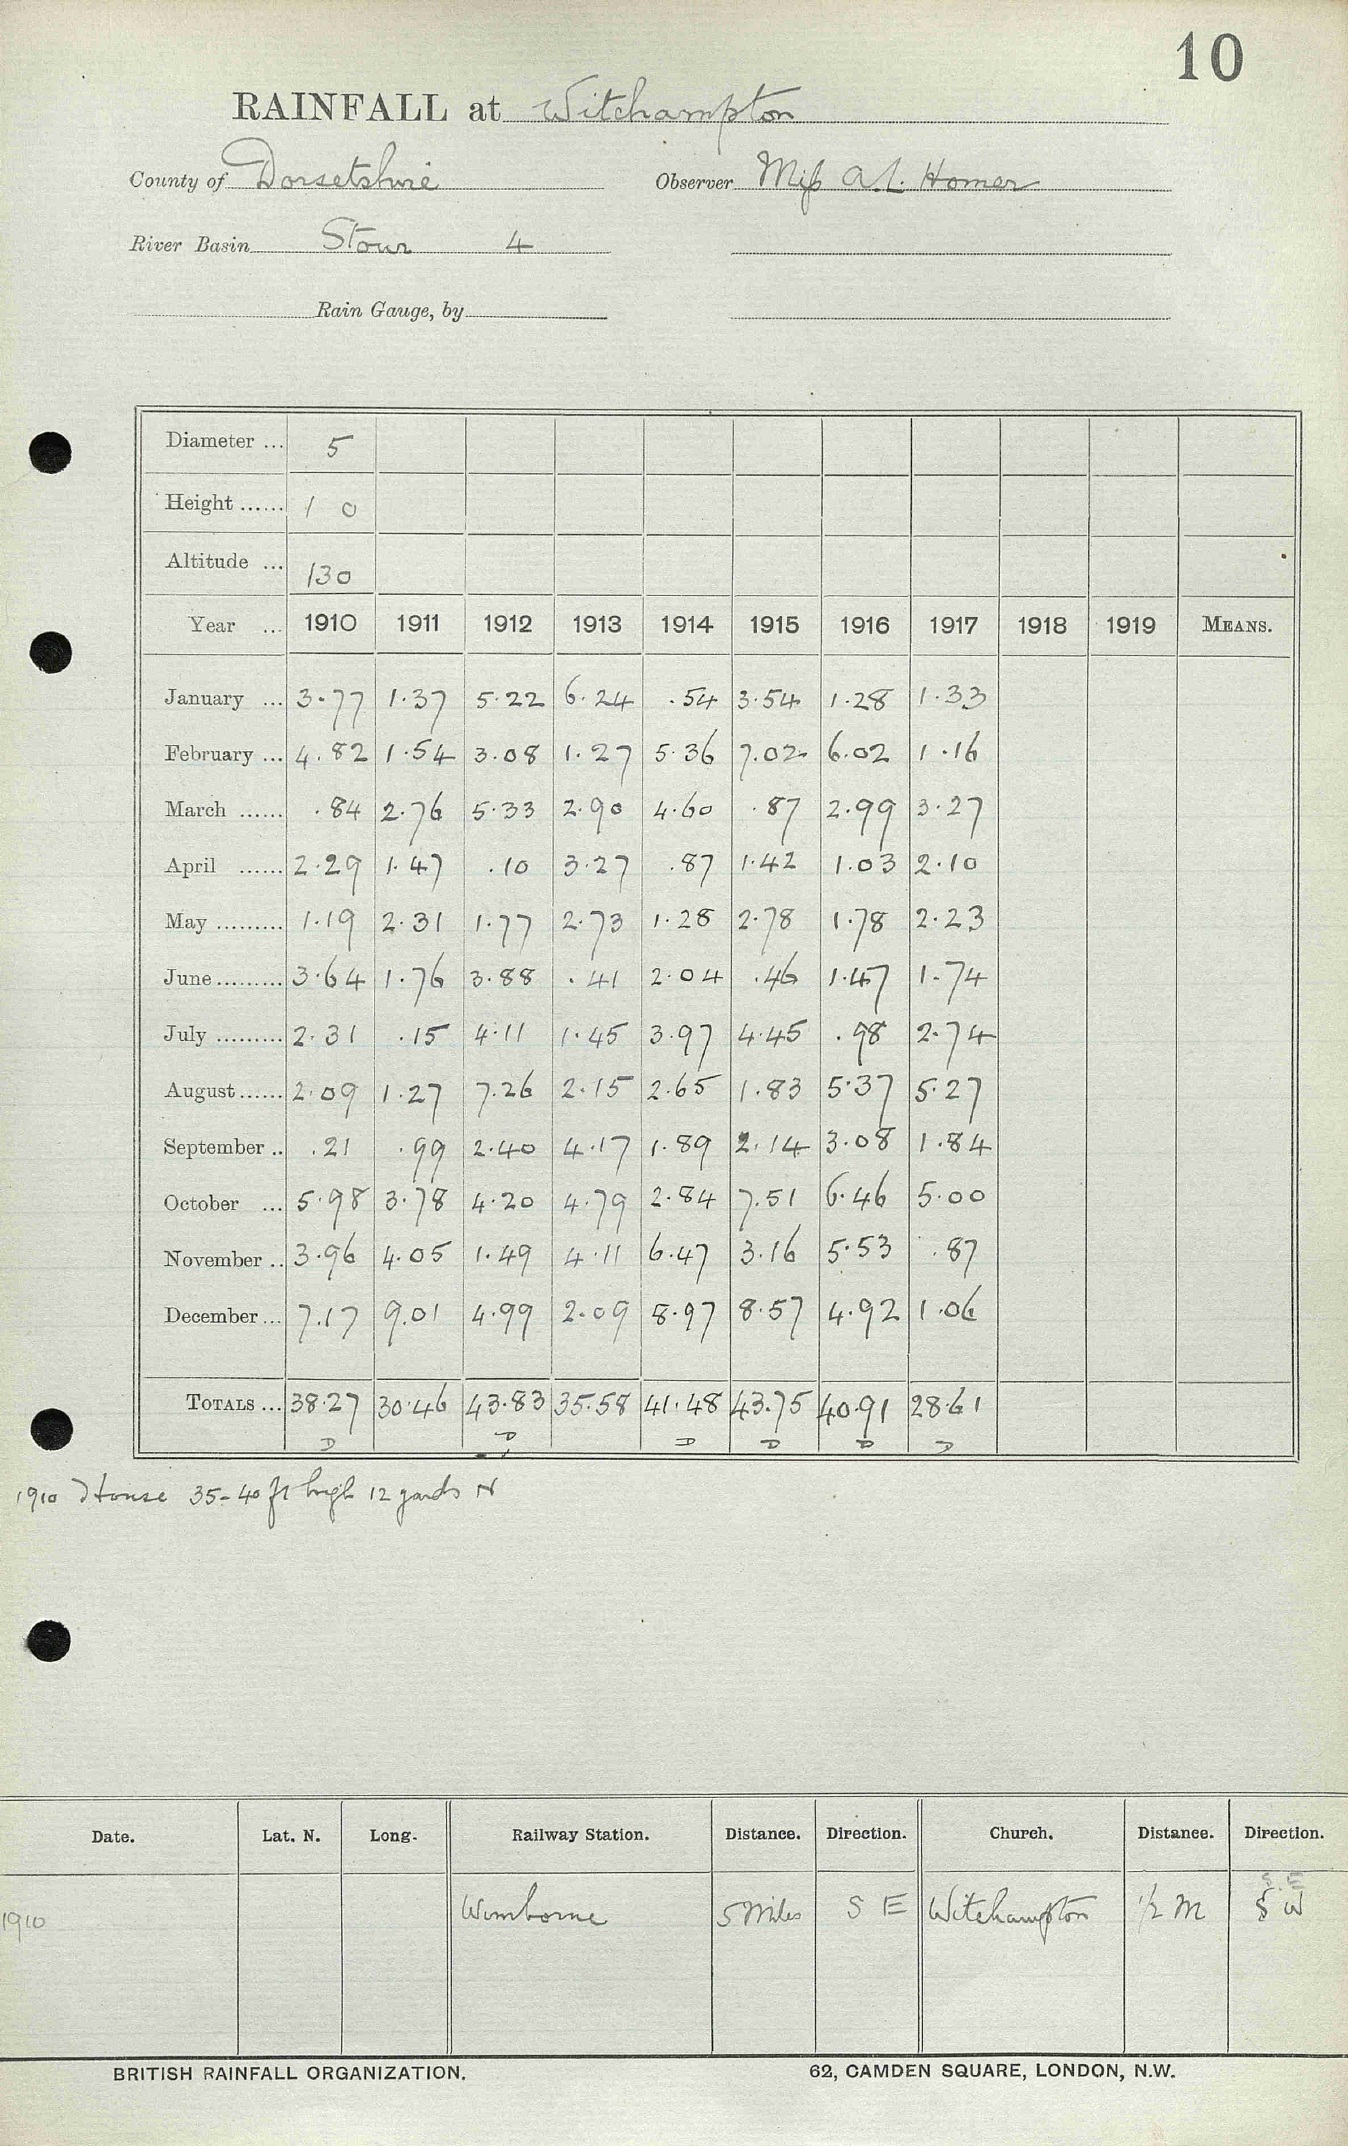 10
RAINFALL at Witchampton
County of Dorsetshire Observer Miss A.L. Homer
River Basin Stour 4
Rain Gauge, by
Diameter ... 5
Height ...... 1 0
Altitude ... 130
Year ... 1910 1911 1912 1913 1914 1915 1916 1917 1918 1919 MEANS.
January ... 3.77 1.37 5.22 6.24 .54 3.54 1.28 1.33
February ... 4.82 1.54 3.08 1.27 5.36 7.02 6.02 1.16
March ...... .84 2.76 5.33 2.90 4.60 .87 2.99 3.27
April ...... 2.29 1.47 .10 3.27 .87 1.42 1.03 2.10
May ......... 1.19 2.31 1.77 2.73 1.28 2.78 1.78 2.23
June ......... 3.64 1.76 3.88 .41 2.04 .46 1.47 1.74
July ......... 2.31 .15 4.11 1.45 3.97 4.45 .98 2.74
August ...... 2.09 1.27 7.26 2.15 2.65 1.83 5.37 5.27
September .. .21 .99 2.40 4.17 1.89 2.14 3.08 1.84
October ... 5.98 3.78 4.20 4.79 2.84 7.51 6.46 5.00
November .. 3.96 4.05 1.49 4.11 6.47 3.16 5.53 .87
December ... 7.17 9.01 4.99 2.09 8.97 8.57 4.92 1.06
TOTALS ... 38.27 30.46 43.83 35.58 41.48 43.75 40.91 28.61
D D D D D D
1910 House 35-40 ft high 12 yards N
Date. Lat. N. Long. Railway Station. Distance. Direction. Church. Distance. Direction.
S. E
1910 Wimborne 5 Miles S E Witchampton 1/2 M S W
BRITISH RAINFALL ORGANIZATION. 62, CAMDEN SQUARE, LONDON, N.W.